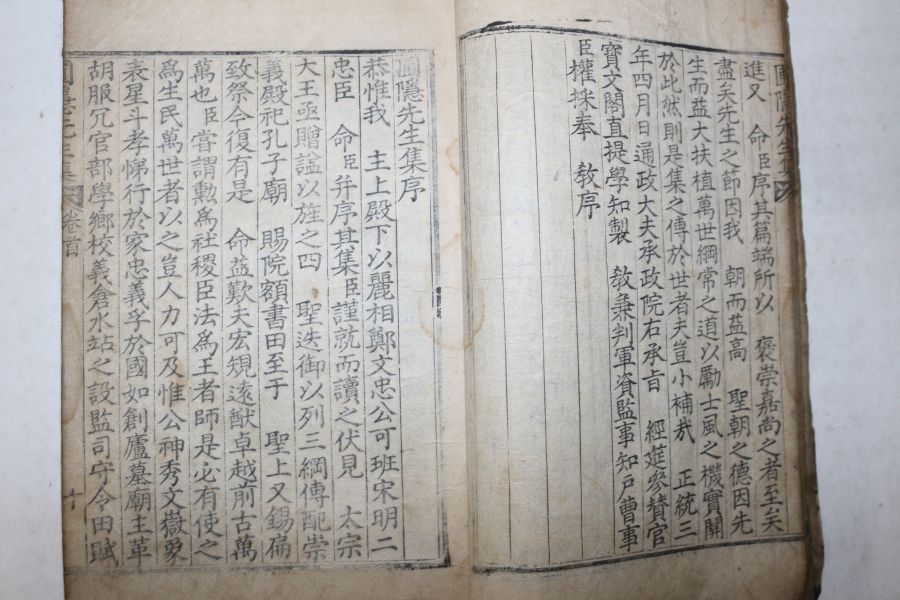 進又 命臣序其篇端所以 褒崇嘉尚之者至矣
盡矣先生之節因我 朝而益高 聖朝之德因先
生而益大扶植萬世綱常之道以勵士風之機實關
於此然則是集之傳於世者夫豈小補哉 正統三
年四月日通政大夫承政院右承旨 經筵參贊官
寶文閣直提學知製 敎兼判軍資監事知戶曹事
臣權採奉 敎序
圃隱先生集序
恭惟我 主上殿下以麗相鄭文忠公可班宋明二
忠臣 命臣弁序其集臣謹就而讀之伏見 太宗
大王亟贈謚以旌之四 聖迭御以列三綱傳配崇
義殿祀孔子廟 賜院額書田至于 聖上又錫扁
致祭今復有是 命益歎夫宏規遠猷卓越前古萬
萬也臣嘗謂勳爲社稷臣法爲王者師是必有使之
爲生民萬世者以之豈人力可及惟公神秀文嶽靈
袤星斗孝悌行於家忠義孚於國如創廬墓廟主革
胡服冗官部學鄕校義倉水站之設監司守令田賦
圃隱先生集 卷首 十